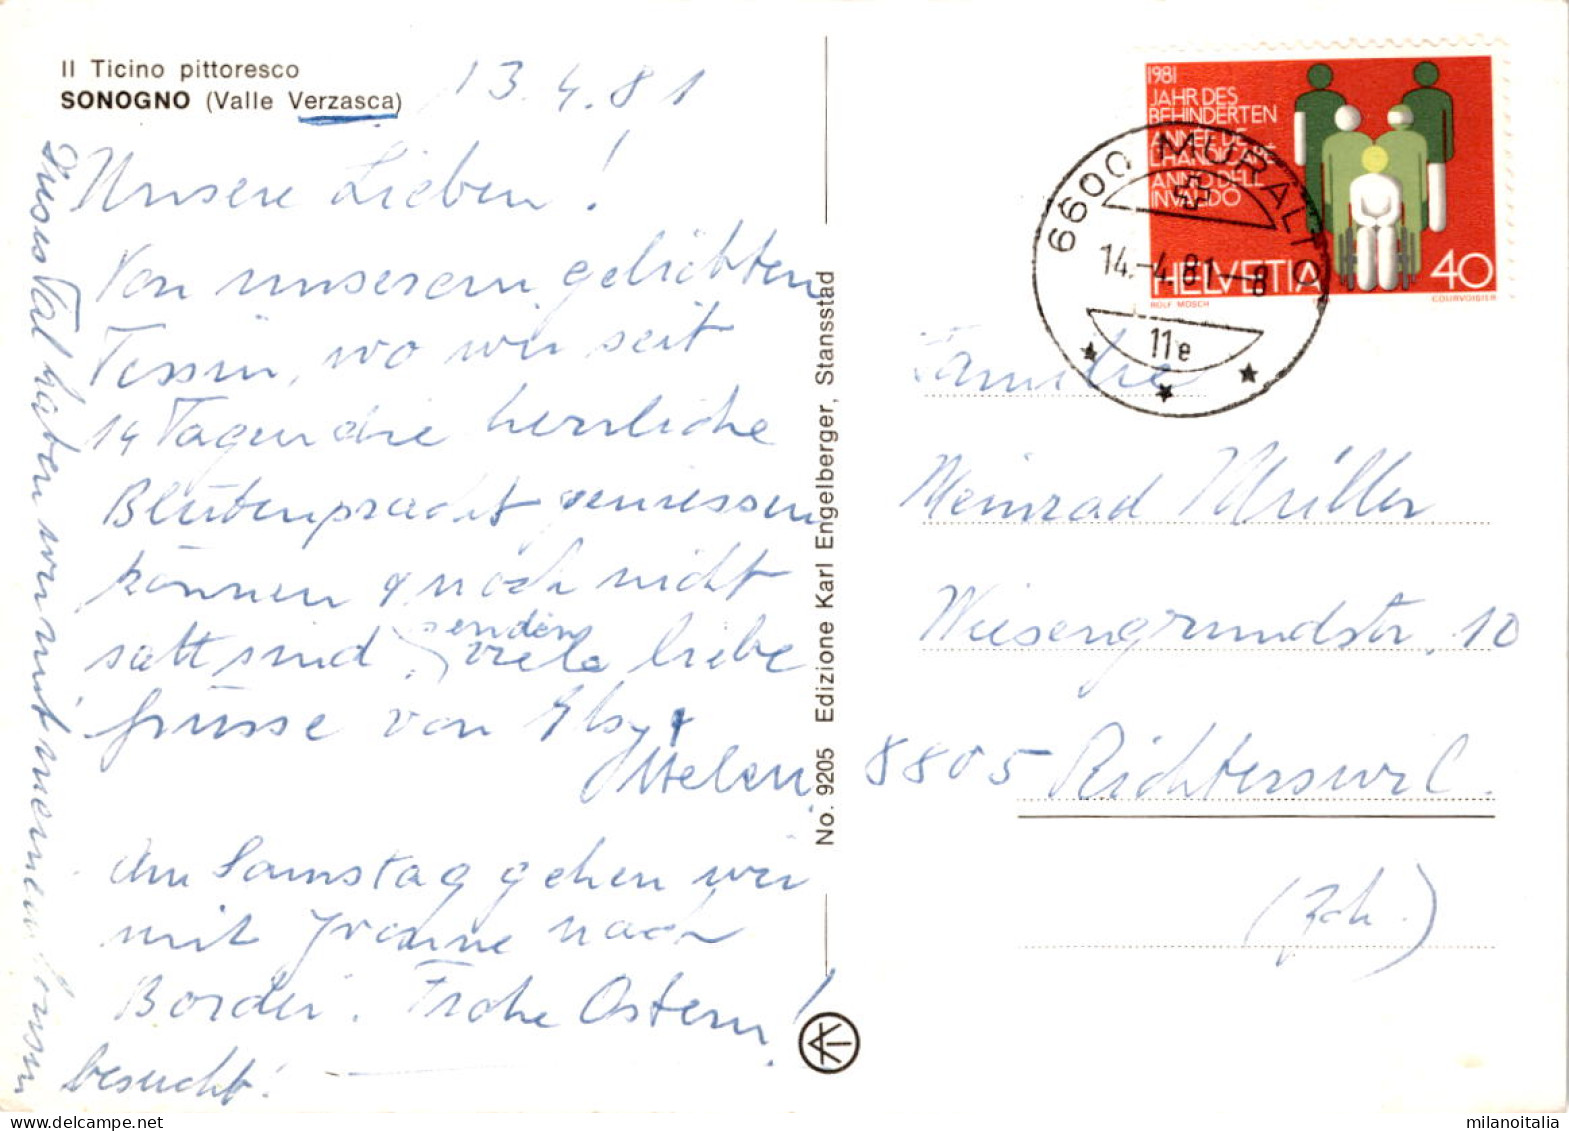 Il Ticino pittoresco
SONOGNO (Valle Verzasca)
13.4.81
Unsere Lieben!
Von unserem geliebten
Tessin, wo wir seit
14 Tagen die herrliche
Blütenpracht geniessen
können & noch nicht
satt sind, senden
viele liebe
grüsse von Elsy &
Helen.
Am Samstag gehen wir
mit Yvonne nach
Bordei. Frohe Ostern!
Dieses Tal haben wir mit meinem
besucht!
No. 9205 Edizione Karl Engelberger, Stansstad
1981
JAHR DES
BEHINDERTEN
ANNÉE DE
L'HANDICAPÉ
ANNO DELL'
INVALIDO
HELVETIA 40
ROLF MOSCH
COURVOISIER
6600 MURALTO
14.-4.81-8
11e
Familie
Meinrad Müller
Wiesengrundstr. 10
8805 Richterswil.
(Zch.)
milanoitalia